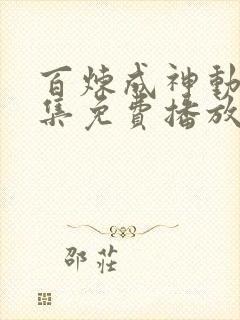 百炼成神動
集免費播放
邵莊